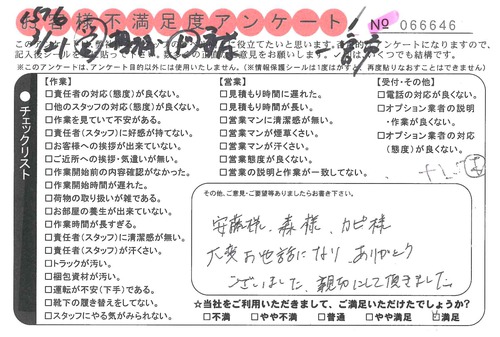 お客様不満足度アンケート
No 066646
※このアンケートは、アンケート目的以外には使用いたしません。(※情報保護シールは1度はがすと、再度貼りなおすことはできません)
チェックリスト
【作業】
□責任者の対応(態度)が良くない。
□他のスタッフの対応(態度)が良くない。
□作業を見ていて不安がある。
□責任者(スタッフ)に好感が持てない。
□お客様への挨拶が出来ていない。
□ご近所への挨拶・気遣いが無い。
□作業開始前の内容確認がなかった。
□作業開始時間が遅れた。
□荷物の取り扱いが雑である。
□お部屋の養生が出来ていない。
□作業時間が長すぎる。
□責任者(スタッフ)に清潔感が無い。
□責任者(スタッフ)が汗くさい。
□トラックが汚い。
□梱包資材が汚い。
□運転が不安(下手)である。
□靴下の履き替えをしてない。
□スタッフにやる気がみられない。
【営業】
□見積もり時間に遅れた。
□見積もり時間が長い。
□営業マンに清潔感が無い。
□営業マンが煙草くさい。
□営業マンが汗くさい。
□営業態度が良くない。
□営業の説明と作業が一致してない。
【受付・その他】
□電話の対応が良くない。
□オプション業者の説明
・作業が良くない。
□オプション業者の対応
(態度)が良くない。
その他、ご意見・ご要望等ありましたらお書き下さい。
安藤様、森様、カピ様
大変お世話になり ありがとう
ございました。親切にして頂きました。
☆当社をご利用いただきまして、ご満足いただけたでしょうか?
□不満 □やや不満 □普通 □やや満足 □満足